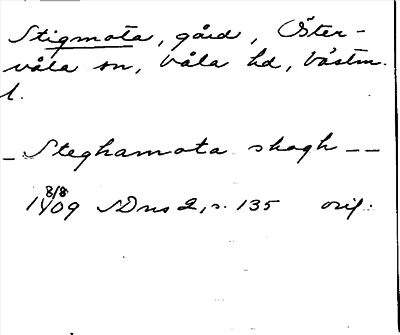 Stigmota, gård, Öster-
våla sn, Våla hd, Västm.
l.
_ Steghamota skogh _ _
8/8
1409 SDns 2, s. 135 orig.